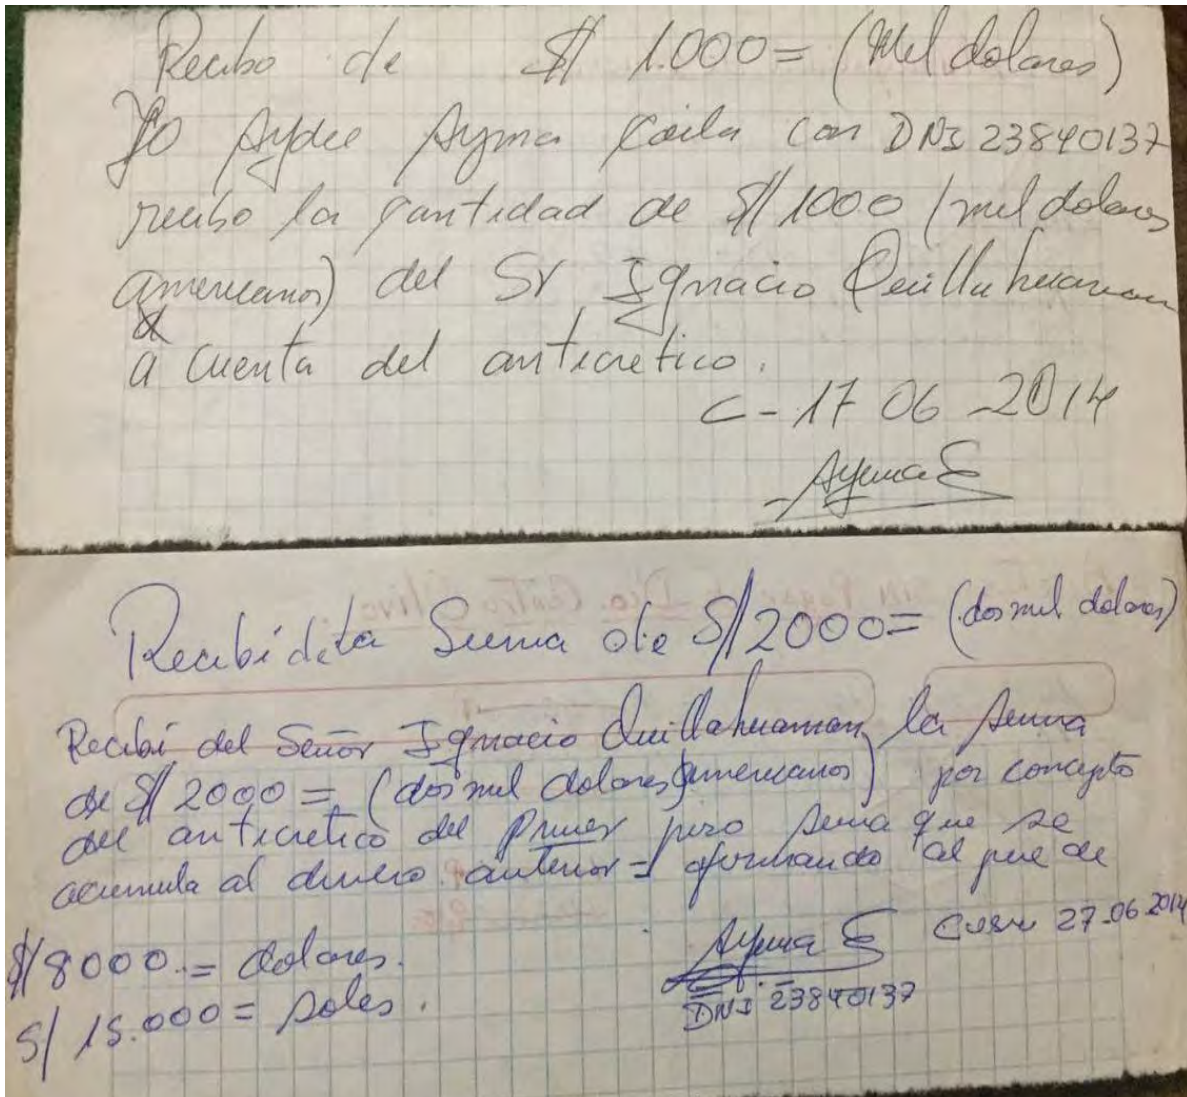 Recibo de $/ 1.000= (Mil dolares)
Yo Aydee Ayma Ccoila con DNI 23840137
recibo la cantidad de $/ 1000 (mil dolares
americanos) del Sr Ignacio Quillahuaman
a cuenta del anticretico.
C- 17 06 -2014
Ayma C
Recibi de la Suma de $/ 2000= (dos mil dolares)
Recibi del Señor Ignacio Quillahuaman la suma
de $/ 2000= (dos mil dolares americanos) por concepto
del anticretico del primer piso suma que se
acumula al dinero anterior = firmando al pie de
Ayma C Cusco 27-06-2014
$/ 8000.= dolares.
DNI 23840137
S/ 15.000= soles.